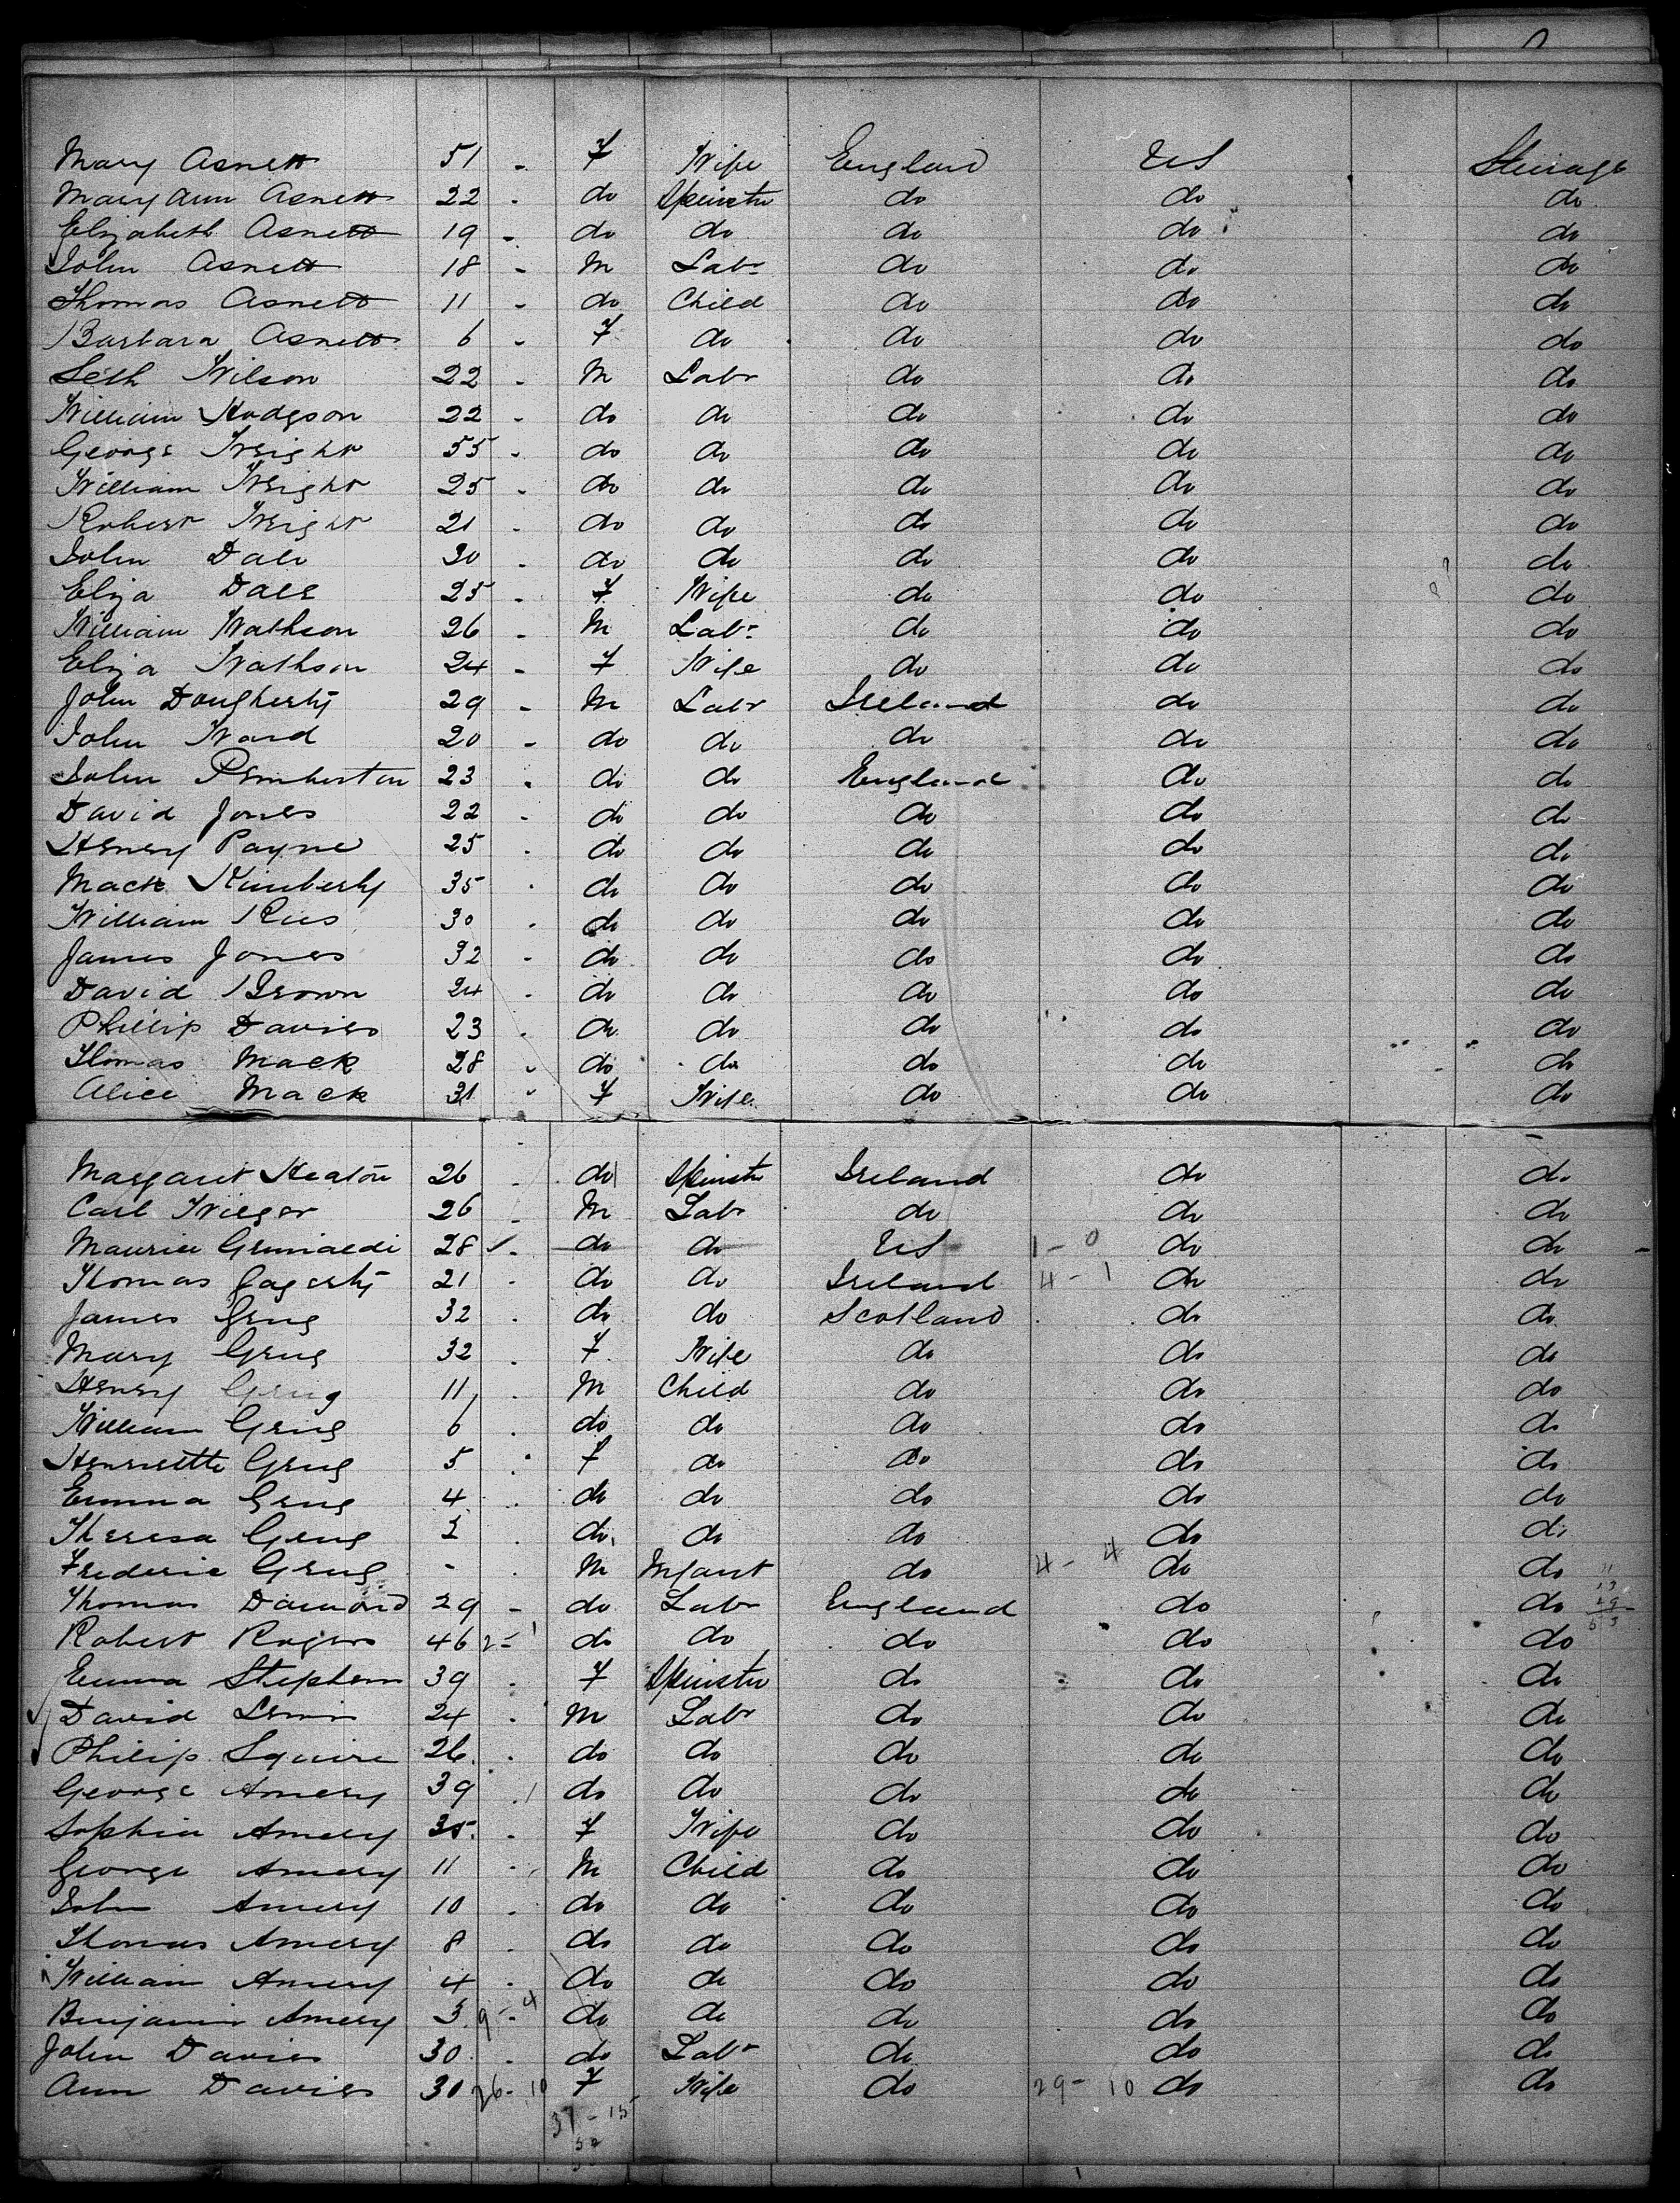 Mary Asnett 51 - F Wife England US Steerage
Mary Ann Asnett 22 - do Spinstr do do do
Elizabeth Asnett 19 - do do do do do
John Asnett 18 - M Labr do do do
Thomas Asnett 11 - do Child do do do
Barbara Asnett 6 - F do do do do
Seth Wilson 22 - M Labr do do do
William Hodgson 22 - do do do do do
George Wright 55 - do do do do do
William Wright 25 - do do do do do
Robert Wright 21 - do do do do do
John Dale 30 - do do do do do
Eliza Dale 25 - F Wife do do do
William Wathson 26 - M Labr do do do
Eliza Wathson 24 - F Wife do do do
John Dougherty 29 - M Labr Ireland do do
John Ward 20 - do do do do do
John Pemberton 23 - do do England do do
David Jones 22 - do do do do do
Henry Payne 25 - do do do do do
Mack Kimberly 35 - do do do do do
William Rees 30 - do do do do do
James Jones 32 - do do do do do
David Brown 24 - do do do do do
Phillip Davies 23 - do do do do do
Thomas Mack 28 - do do do do do
Alice Mack 31 - F Wife do do do
Margaret Keaton 26 - do Spinstr Ireland do do
Carl Wieger 26 - M Labr do do do
Maurice Grimaldi 28 - do do US 1 - 0 do do
Thomas Fagerty 21 - do do Ireland 4 - 1 do do
James Greig 32 - do do Scotland do do
Mary Greig 32 - F Wife do do do
Henry Greig 11 - M Child do do do
William Greig 6 - do do do do do
Henriette Greig 5 - F do do do do
Emma Greig 4 - do do do do do
Theresa Greig do do do do do
Frederic Greig - M Infant do 4 - 4 do do
Thomas 29 - do Labr England do do
Robert Rogers 46 2 - 1 do do do do do
Emma Stephens 39 - F Spinstr do do do
David 24 - M Labr do do do
Philip Squire 26 - do do do do do
George Amery 39 - do do do do do
Sophia Amery 35 - F Wife do do do
George Amery 11 - M Child do do do
John Amery 10 - do do do do do
Thomas Amery 8 - do do do do do
William Amery 4 - do do do do do
Benjamin Amery 3 9 - 4 do do do do do
John Davies 30 - do Labr do do do
Ann Davies 30 26 - 10 F Wife do 29 - 10 do do
37 - 15